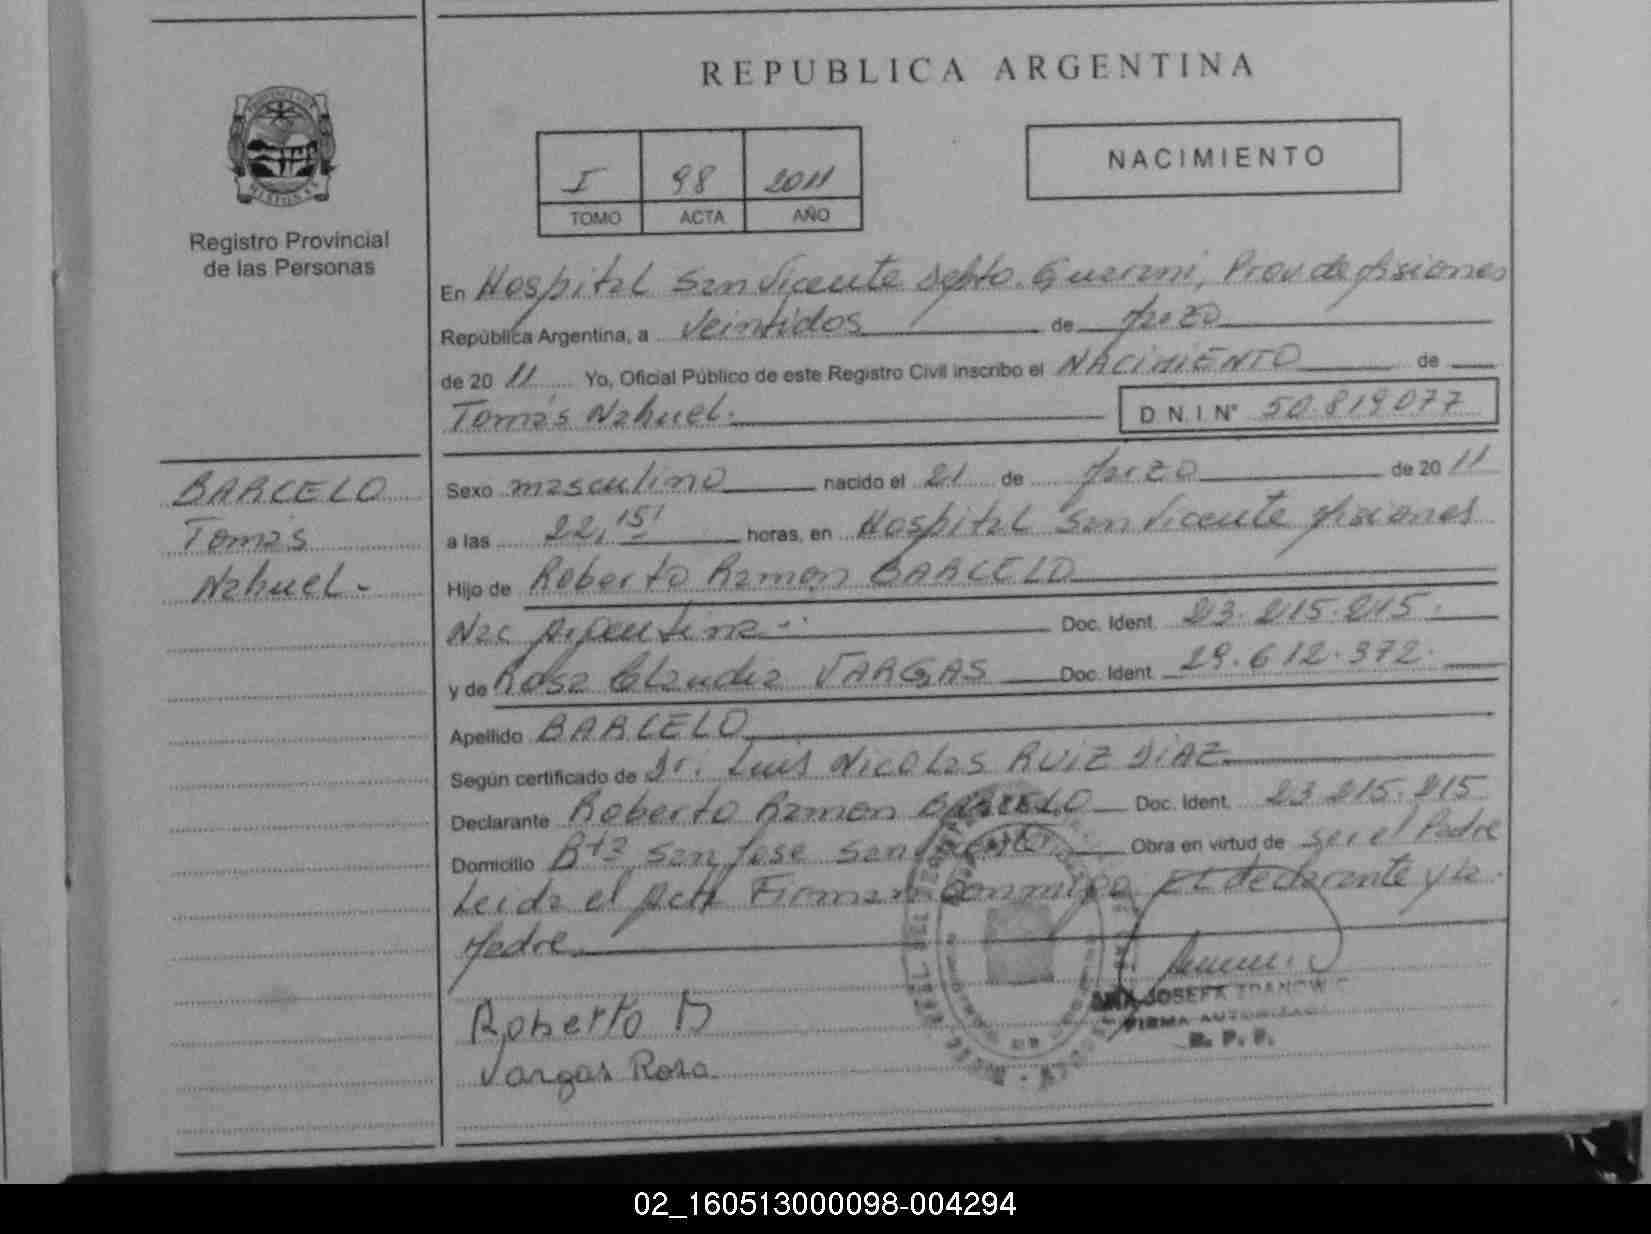 REPUBLICA ARGENTINA
PROVINCIA DE
MISIONES
Registro Provincial
de las Personas
I 98 2011
TOMO ACTA AÑO
NACIMIENTO
En Hospital San Vicente Depto. Guarani, Prov de Misiones
República Argentina, a veintidos de Marzo
de 20 11 Yo, Oficial Público de este Registro Civil inscribo el NACIMIENTO de
Tomás Nahuel. D.N.I. N° 50.819.077
BARCELO
Tomás
Nahuel-
Sexo masculino nacido el 21 de Marzo de 20 11
a las 22,15' horas, en Hospital San Vicente Misiones
Hijo de Roberto Ramon BARCELO
Nac Argentina Doc. Ident. 23.215.215.
y de Rosa Claudia VARGAS Doc. Ident. 29.612.372.
Apellido BARCELO
Según certificado de Dr. Luis Nicolas RUIZ DIAZ
Declarante Roberto Ramon BARCELO Doc. Ident. 23.215.215
Domicilio B+2 San Jose San Vicente Obra en virtud de ser el Padre
Leida el Acta Firman conmigo El declarante y la
Madre
Roberto B
Vargas Rosa
ANA JOSEFA
FIRMA AUTORIZADA
R. P. P.
02_160513000098-004294